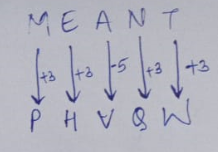 M E A N T
+3 +3 -5 +3 +3
P H V Q W